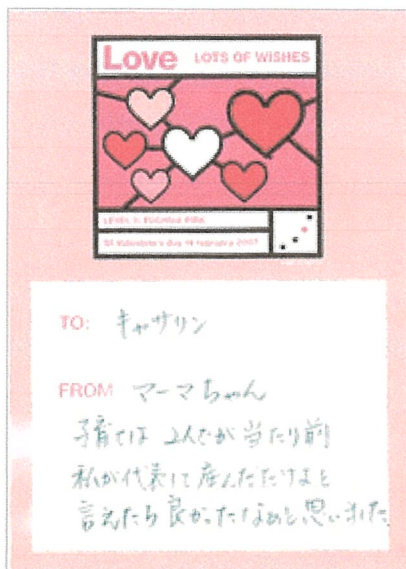 Love LOTS OF WISHES
LEVEL 3: FUCHSIA PINK
St Valentine's day 14 february 2007
TO: キャサリン
FROM マーマちゃん
子育ては 2人でが 当たり前
私が代表して産んだだけよと
言えたら良かったなあと思いました